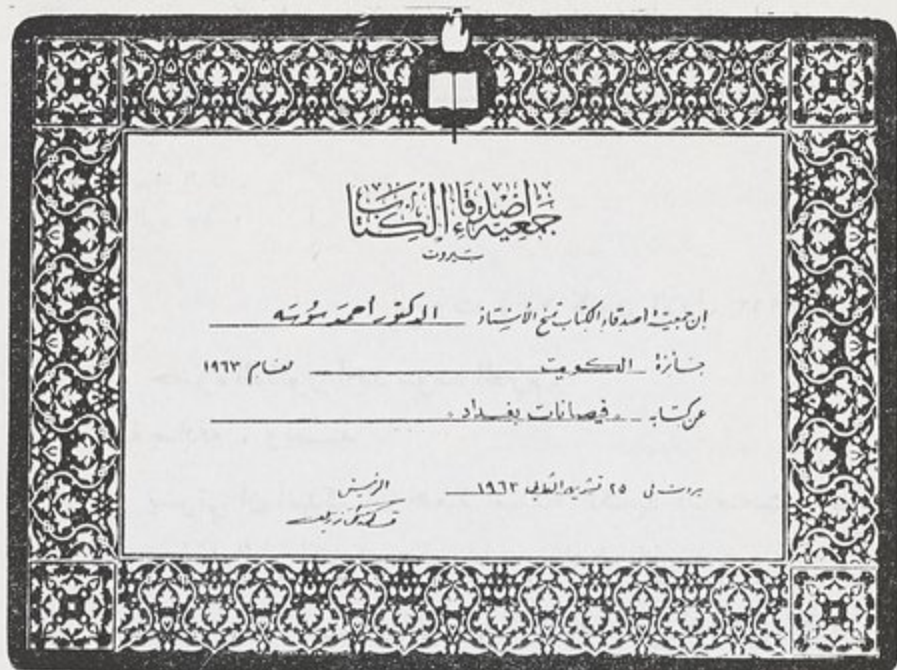 جمعية اصدقاء الكتاب
بيروت
ان جمعية اصدقاء الكتاب تمنح الأستاذ الدكتور أحمد سوسه
جائزة الكويت لعام ١٩٦٣
عن كتابه «فيضانات بغداد»
بيروت في ٢٥ تشرين الثاني ١٩٦٣
الرئيس